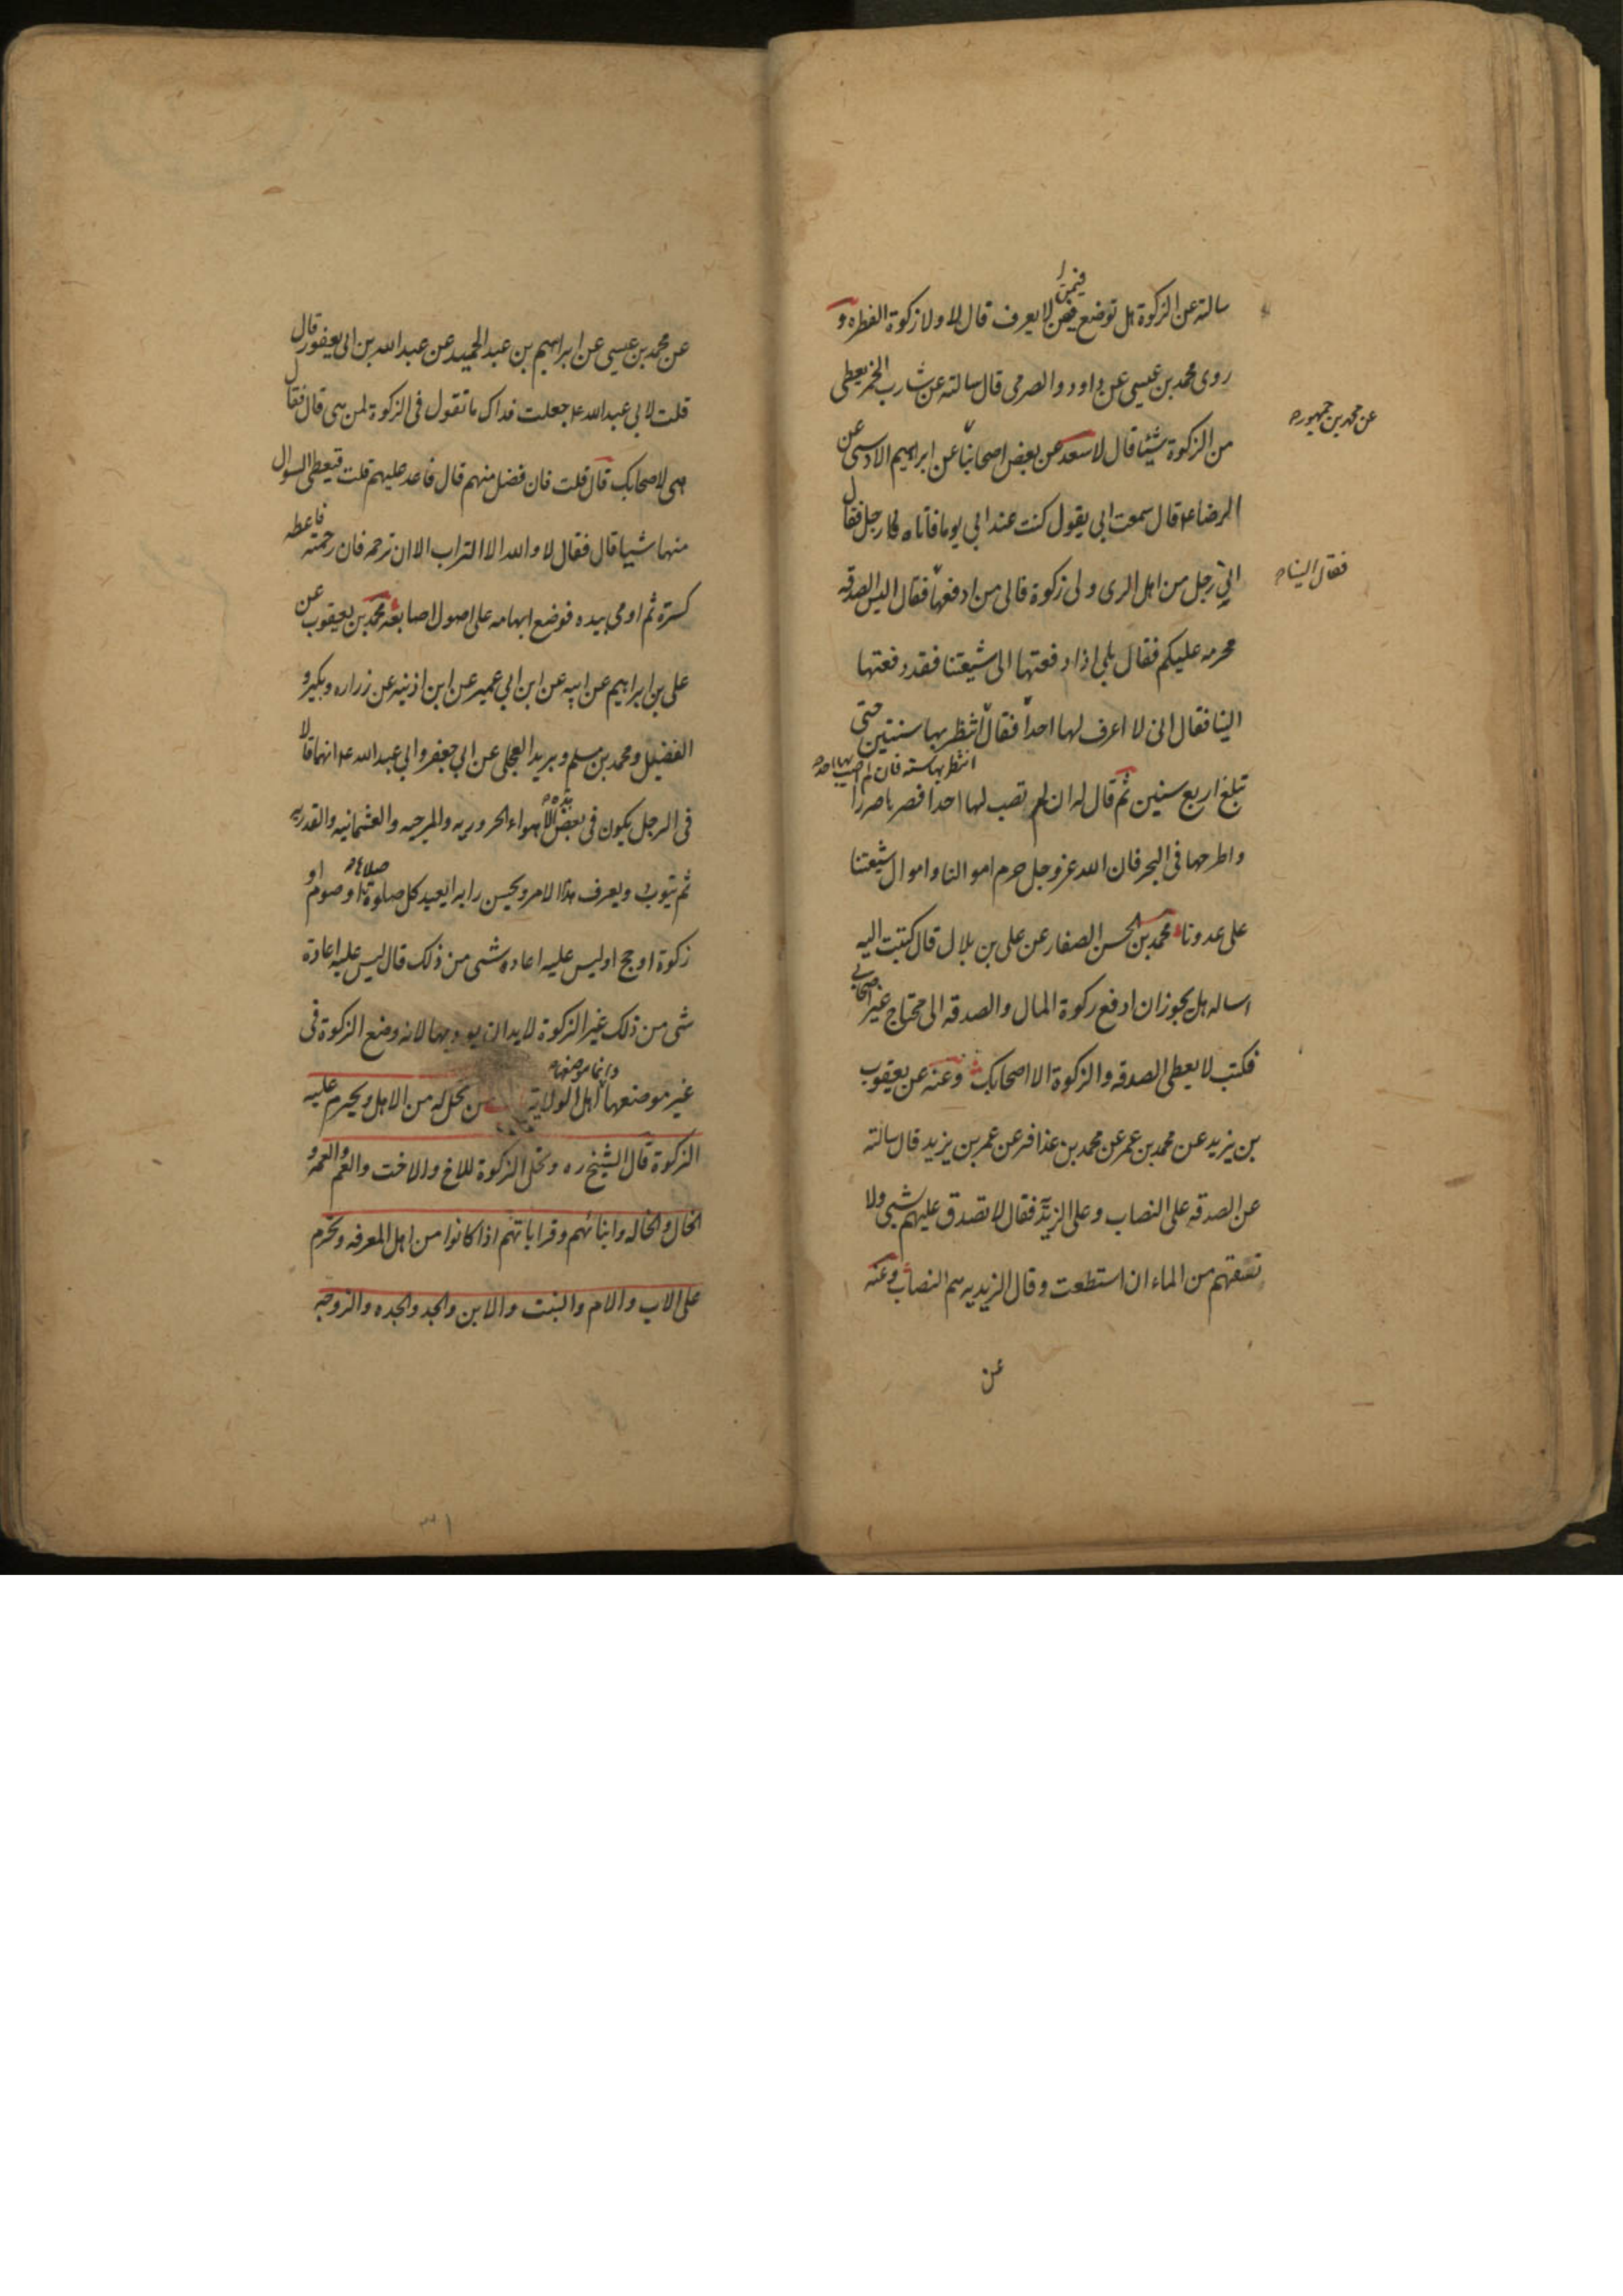 فيمن
سالته عن الزكوة هل توضع فيمن لا يعرف قال لا ولا زكوة الفطره و
روى محمد بن عيسى عن داود والصرمى قال سالته عن شارب الخمر يعطى
من الزكوة شيئا قال لا سعد عن بعض اصحابنا عن ابراهيم الاوسى عن
عن محمد بن جمهور
الرضا ع قال سمعت ابى يقول كنت عند ابى يوما فاتاه رجل فقال
انى رجل من اهل الرى ولى زكوة فالى من ادفعها فقال اليس الصدقه
فقال الينا
محرمه عليكم فقال بلى اذا دفعتها الى شيعتنا فقد دفعتها
الينا فقال انى لا اعرف لها احدا فقال انتظر بها سنتين حتى
انتظر بها سنه فان لم اصب لها احدا
تبلغ اربع سنين ثم قال له ان لم تصب لها احدا فصرها صررا
واطرحها فى البحر فان الله عز وجل حرم اموالنا واموال شيعتنا
على عدونا محمد بن الحسن الصفار عن على بن بلال قال كتبت اليه
اساله هل يجوز ان ادفع زكوة المال والصدقه الى محتاج غير اصحابى
فكتب لا يعطى الصدقه والزكوة الا اصحابك وعنه عن يعقوب
بن يزيد عن محمد بن عمر عن محمد بن عذافر عن عمر بن يزيد قال سالته
عن الصدقه على النصاب وعلى الزيدية فقال لا تصدق عليهم بشى ولا
تسقهم من الماء ان استطعت وقال الزيديه هم النصاب وعنه
عن
عن محمد بن عيسى عن ابراهيم بن عبد الحميد عن عبد الله بن ابى يعفور قال
قلت لابى عبد الله ع جعلت فداك ما تقول فى الزكوة لمن هى قال فقال
هى لاصحابك قال قلت فان فضل منهم قال فاعد عليهم قلت فيعطى السوال
منها شيا قال فقال لا والله الا التراب الا ان ترحمه فان رحمته فاعطه
كسرة ثم اومى بيده فوضع ابهامه على اصول اصابعه محمد بن يعقوب عن
على بن ابراهيم عن ابيه عن ابن ابى عمير عن ابن اذنيه عن زراره وبكير و
الفضيل ومحمد بن مسلم وبريد العجلى عن ابى جعفر وابى عبد الله ع انهما قالا
هذه
فى الرجل يكون فى بعض الاهواء الحروريه والمرجيه والعثمانيه والقدريه
صلاها
ثم يتوب ويعرف هذا الامر ويحسن رايه ايعيد كل صلوة او صوم او
زكوة او حج اوليس عليه اعاده شى من ذلك قال ليس عليه اعادة
شى من ذلك غير الزكوة لابد ان يوديها لانه وضع الزكوة فى
وانما موضعها
غير موضعها اهل الولاية من تحل له من الاهل ويحرم عليه
الزكوة قال الشيخ ره وتحل الزكوة للاخ والاخت والعم والعمه و
الخال والخاله وابنائهم وقراباتهم اذا كانوا من اهل المعرفه وتحرم
على الاب والام والبنت والابن والجد والجده والزوجه